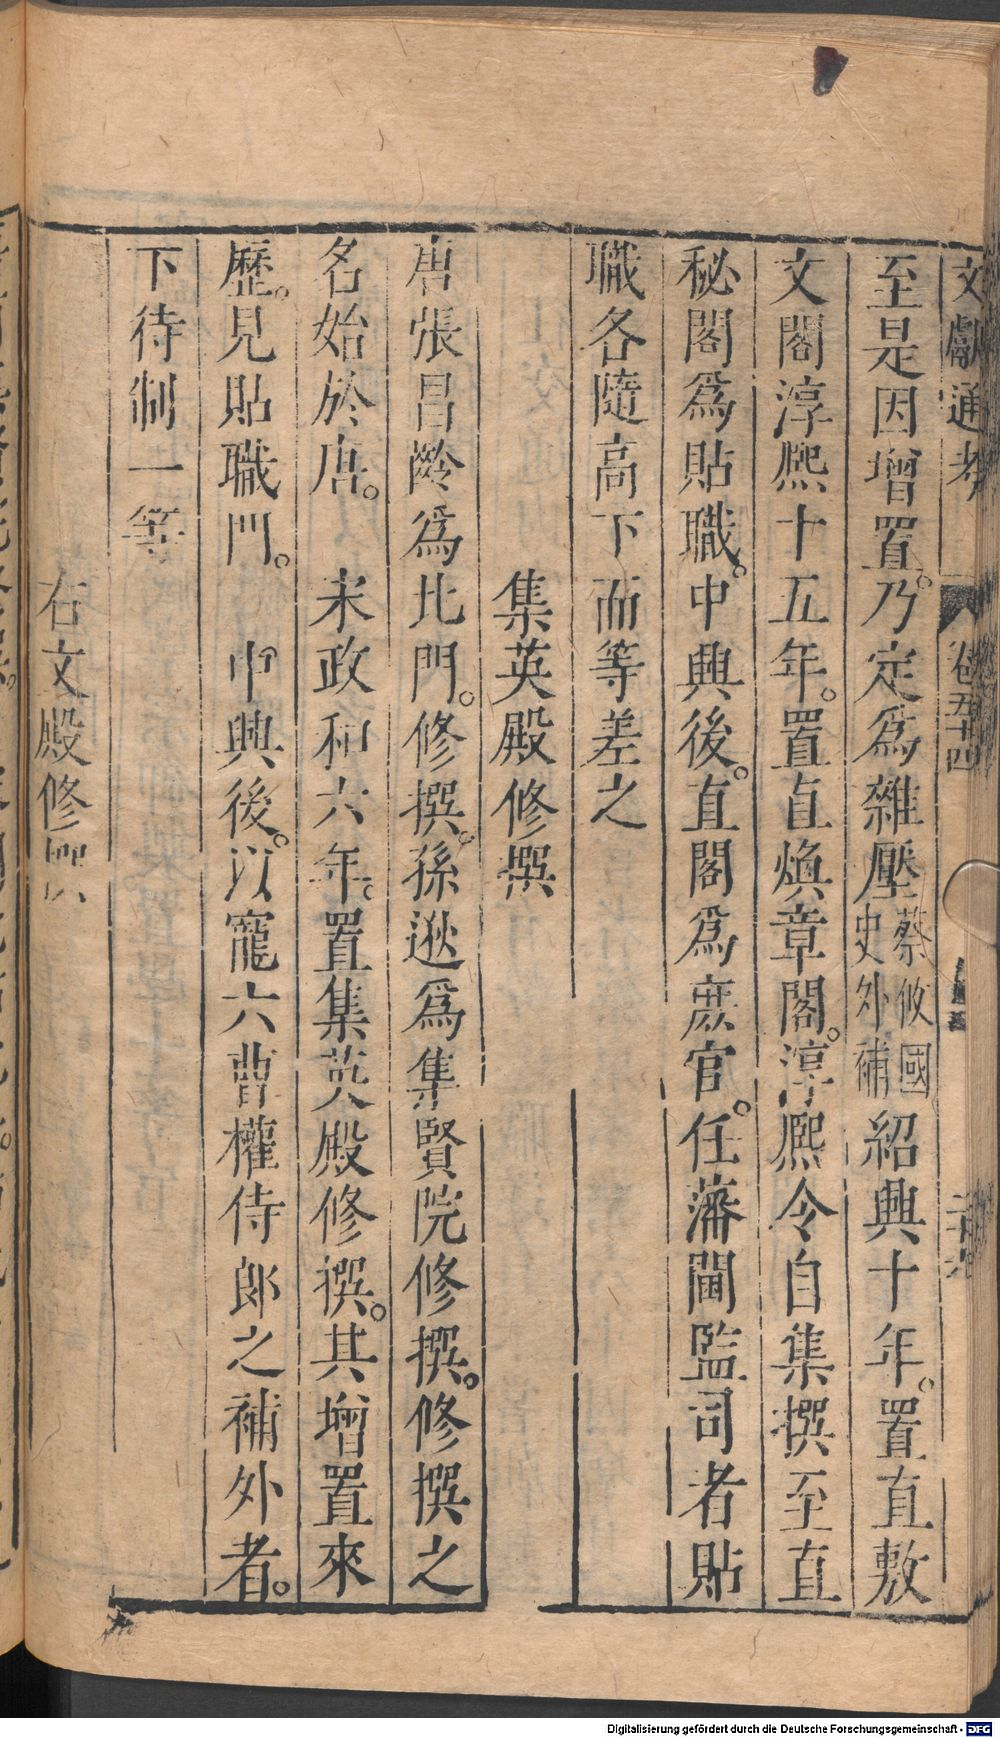 文獻通考 卷五十四
至是因增置。乃定爲雜壓蔡攸國史外補紹興十年。置直敷
文閣淳熙十五年。置直煥章閣。淳熙令自集撰至直
秘閣爲貼職。中興後。直閣爲庶官。任藩閫監司者貼
職各隨高下而等差之
集英殿修撰
唐張昌齡爲北門。修撰。孫逖爲集賢院修撰。修撰之
名始於唐。宋政和六年。置集英殿修撰。其增置來
歷。見貼職門。中興後。以寵六曹權侍郎之補外者。
下待制一等
右文殿修撰
Digitalisierung gefördert durch die Deutsche Forschungsgemeinschaft - DFG